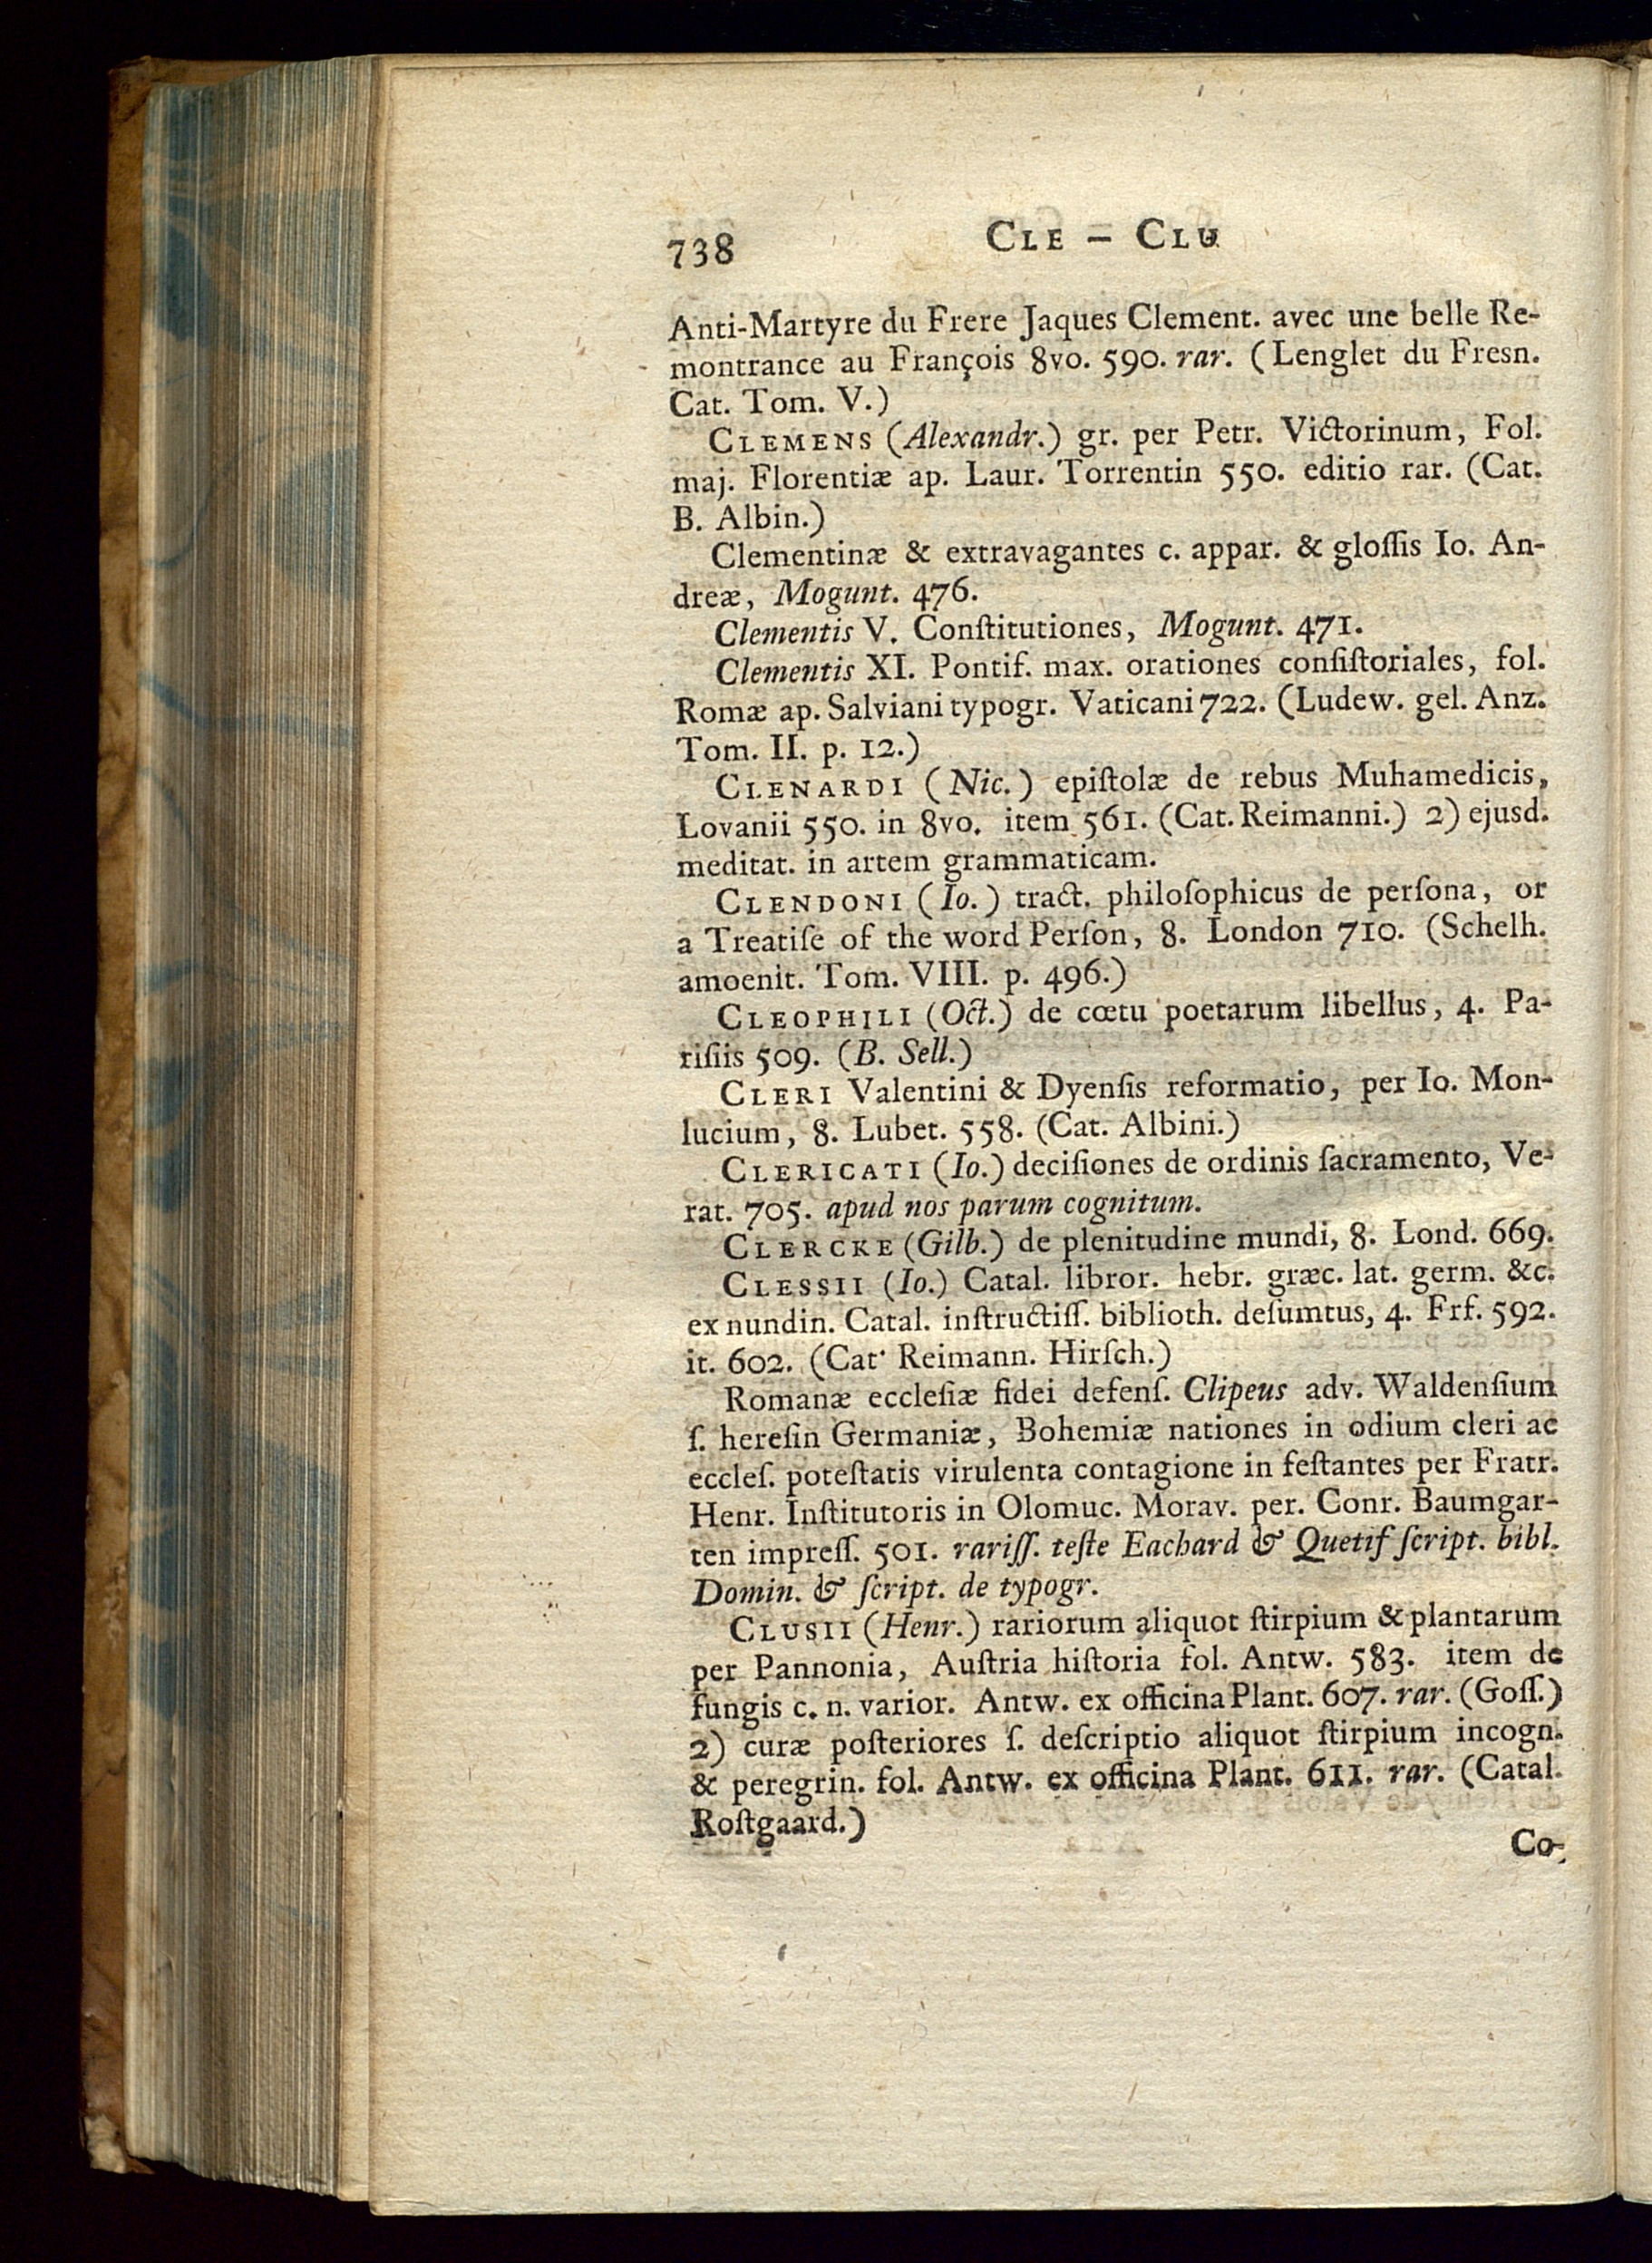 738 CLE – CLU
Anti-Martyre du Frere Jaques Clement. avec une belle Re-
montrance au François 8vo. 590. rar. (Lenglet du Fresn.
Cat. Tom. V.)
CLEMENS (Alexandr.) gr. per Petr. Victorinum, Fol.
maj. Florentiæ ap. Laur. Torrentin 550. editio rar. (Cat.
B. Albin.)
Clementinæ & extravagantes c. appar. & gloſſis Io. An-
dreæ, Mogunt. 476.
Clementis V. Conſtitutiones, Mogunt. 471.
Clementis XI. Pontif. max. orationes conſiſtoriales, fol.
Romæ ap. Salviani typogr. Vaticani 722. (Ludew. gel. Anz.
Tom. II. p. 12.)
CLENARDI (Nic.) epiſtolæ de rebus Muhamedicis,
Lovanii 550. in 8vo. item 561. (Cat. Reimanni.) 2) ejusd.
meditat. in artem grammaticam.
CLENDONI (Io.) tract. philoſophicus de perſona, or
a Treatiſe of the word Perſon, 8. London 710. (Schelh.
amoenit. Tom. VIII. p. 496.)
CLEOPHILI (Oct.) de cœtu poetarum libellus, 4. Pa-
riſiis 509. (B. Sell.)
CLERI Valentini & Dyenſis reformatio, per Io. Mon-
lucium, 8. Lubet. 558. (Cat. Albini.)
CLERICATI (Io.) deciſiones de ordinis ſacramento, Ve-
rat. 705. apud nos parum cognitum.
CLERCKE (Gilb.) de plenitudine mundi, 8. Lond. 669.
CLESSII (Io.) Catal. libror. hebr. græc. lat. germ. &c.
ex nundin. Catal. inſtructiſſ. biblioth. deſumtus, 4. Frf. 592.
it. 602. (Cat. Reimann. Hirſch.)
Romanæ eccleſiæ fidei defenſ. Clipeus adv. Waldenſium
ſ. hereſin Germaniæ, Bohemiæ nationes in odium cleri ac
eccleſ. poteſtatis virulenta contagione in feſtantes per Fratr.
Henr. Inſtitutoris in Olomuc. Morav. per. Conr. Baumgar-
ten impreſſ. 501. rariſſ. teſte Eachard & Quetif ſcript. bibl.
Domin. & ſcript. de typogr.
CLUSII (Henr.) rariorum aliquot ſtirpium & plantarum
per Pannonia, Auſtria hiſtoria fol. Antw. 583. item de
fungis c. n. varior. Antw. ex officina Plant. 607. rar. (Goſſ.)
2) curæ poſteriores ſ. deſcriptio aliquot ſtirpium incogn.
& peregrin. fol. Antw. ex officina Plant. 611. rar. (Catal.
Roſtgaard.)
Co-